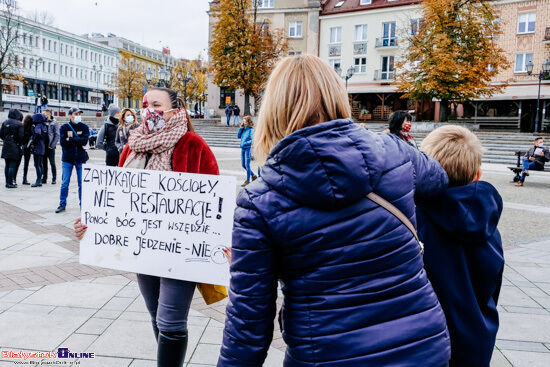 ZAMYKAJCIE KOŚCIOŁY,
NIE RESTAURACJE!
PONOĆ BÓG JEST WSZĘDZIE...
DOBRE JEDZENIE - NIE
Białystok ONLINE
www.BialystokOnline.pl